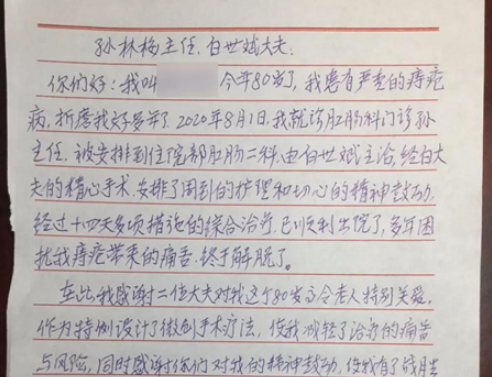 孙林梅主任.白世斌大夫.
你们好:我叫 今年80岁了,我患有严重的痔疮
病,折磨我好多年了.2020年8月1日,我就诊肛肠科门诊孙
主任.被安排到住院部肛肠二科.由白世斌主治,经白大
夫的精心手术.安排了周到的护理和切心的精神鼓动,
经过十四天多项措施的综合治疗.已顺利出院了,多年困
扰我痔疮带来的痛苦.终于解脱了。
在此,我感谢二位大夫对我这个80岁高令老人特别关爱.
作为特例设计了微创手术疗法,使我减轻了治疗的痛苦
与风险,同时感谢你们对我的精神鼓动,使我有了战胜